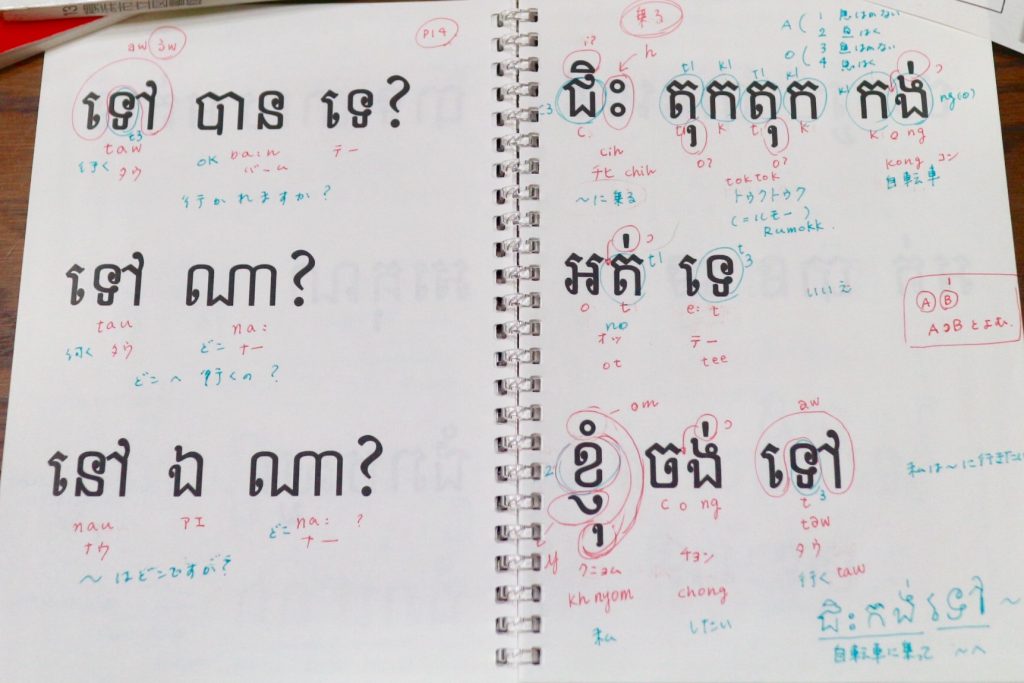 P14
aw əw
ទៅ បាន ទេ?
t3
taw OK baan テー
行く タウ バーム
行かれますか?
ទៅ ណា?
tau na:
行く タウ どこ ナー
どこへ行くの?
នៅ ឯ ណា?
nau アエ どこ na: ?
ナウ ナー
〜はどこですか?
乗る
A ( 1 息はかない
2 息はく
O ( 3 息はかない
4 息はく
i? h
t1 k1 t1 k1 k1
ជិះ តុកតុក កង់
ng(o)
c t k t k k o ng
cih o? o?
チヒ chih toktok kong コン
〜に乗る トゥクトゥク 自転車
(=ルモー)
Rumokk.
អត់ ទេ
t1 t3
いいえ
o t e: t
no
オッ テー
ot tee
A B
AɔBとよむ.
om aw
ខ្ញុំ ចង់ ទៅ
2
私は〜に行きたい
c o ng t3
təw
y
クニョム チョン タウ
行く taw
khnyom chong
私 したい
ជិះកង់ ទៅ 〜
自転車に乗って 〜へ